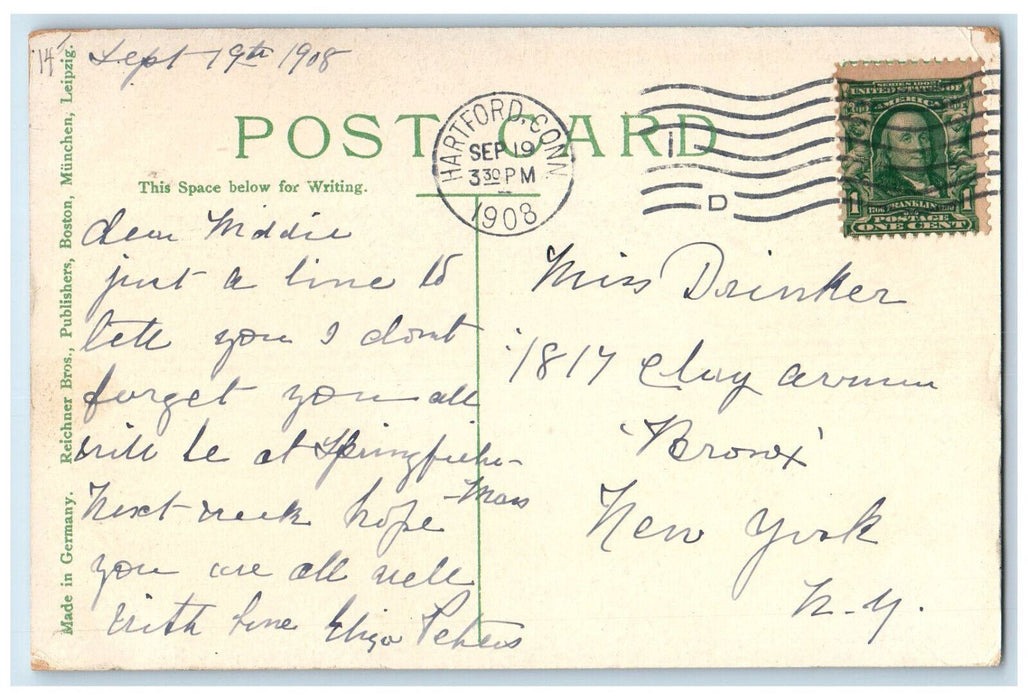 14
Sept 19th 1908
POST CARD
This Space below for Writing.
HARTFORD, CONN.
SEP 19
3 30 PM
1908
D
SERIES 1902
UNITED STATES OF
AMERICA
1 FRANKLIN 1
POSTAGE
ONE CENT
Made in Germany. Reichner Bros., Publishers, Boston, München, Leipzig.
dear Middie
just a line to
tell you I dont
forget you all
will be at Springfield
Mass
Next week hope
you are all well
With love Eliza Peters
Miss Drinker
1817 Clay avenue
'Bronx'
New York
N-Y.